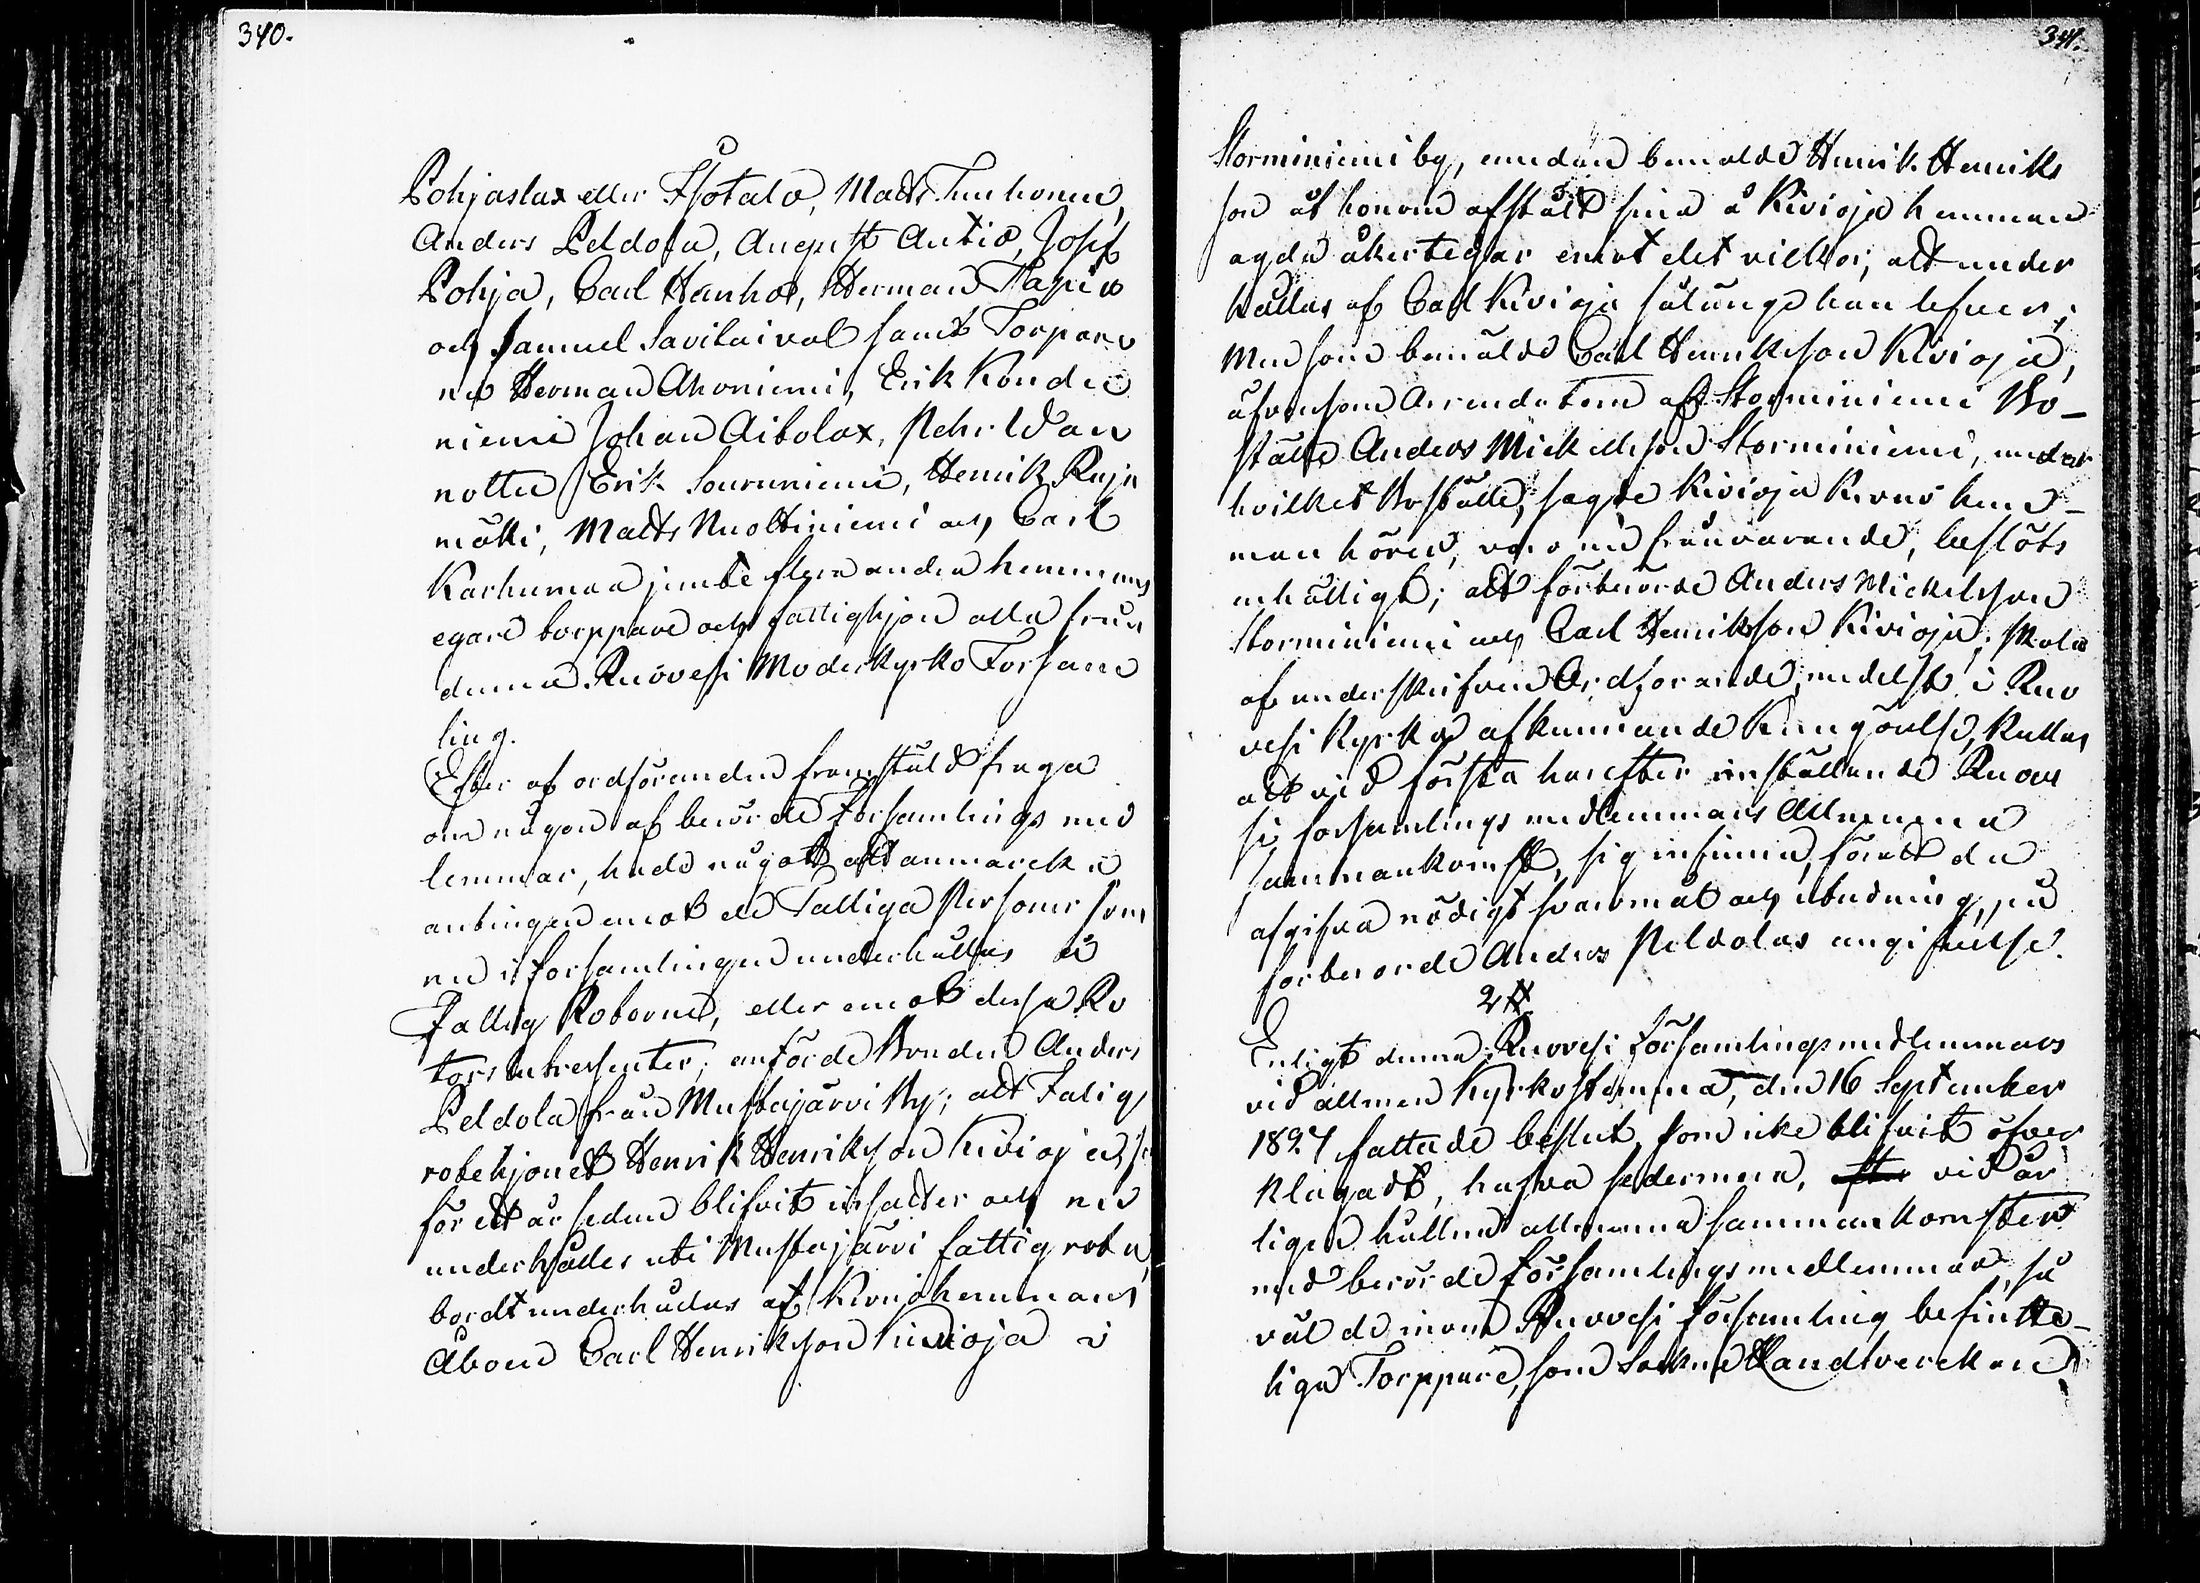 340.
Pohjaslax eller Isotalo, Matts Tuuhonen,
Anders Peldola, August Antio, Josef
Pohja, Carl Hanho, Herman Tapio
och Samuel Savilaival samt Torparo
ne Herman Ahoniemi, Erik Kondie
niemi Johan Aibolax, Pehr Wan
nottu Erik Souruniemi, Henrik Raja
mäki, Matts Nuoltiniemi och Carl
Karhumaa jemte flera andra hemmans
egare torppare och fattighjon alla från
denna Ruovesi Moderkyrko Forsam
ling.
Efter af ordföranden framstäld fraga
om någon af berörde Församlings med
lemmar, hade något att anmarcka
antingen emot de Fattiga Personer som
nu i församlingen underhållas å
Fattig Roterne, eller emot dessa Ro
tors Intressenter; anförde Bonden Anders
Peldola från Mustajärvi By; att Fatig
rotehjonet Henrik Henrikson Kivioja,
för ett år sedan blifvit insatter och nu
underhålles uti Mustajärvi fattig rota,
bordt underhållas af Kronohemmans
Åboen Carl Henrikson Kivioja i
341.
Storminiemi by, emedan bemälde Henrik Henriks
son åt honom afståt sina å Kivioja hemman
ägda åkertegar emot det vilkor, att under
hållas af Carl Kivioja sålänge han lefver;
Men som bemälde Carl Henrikson Kivioja,
äfvensom Arrendatorn af Storminiemi Bo-
ställe Anders Mickellson Storminiemi, under
hvilket Boställe, sagde Kivioja Krono hem-
man hörer, voro nu frånvarande, beslöts
enhälligt; att förberörde Anders Mickelsson
Storminiemi och Carl Henriksson Kivioja, skola
af underskrifven Ordförande, medelst i Ruo
vesi Kyrka afkunnande Kungörelse, kallas
att vid första harefter inställande Ruove
si forsamlings medlemmars Allmenna
sammankomst, sig infinna, för att då
afgifva nödigt svaromål och utredning, på
forberörde Anders Peldolas angifvelse.
2 §
Enligt denna Ruovesi församlingsmedlemmars
vid allmen Kyrkostemma, den 16 September
1827 fattade beslut som icke blifvit öfver
klagadt, hafva sedermera, vid år
ligen hållna allmenna sammankomster
med berörde församlingsmedlemmar, så
väl de inom Ruovesi församling befintte-
liga Torppare, som Sockne Handtverckare